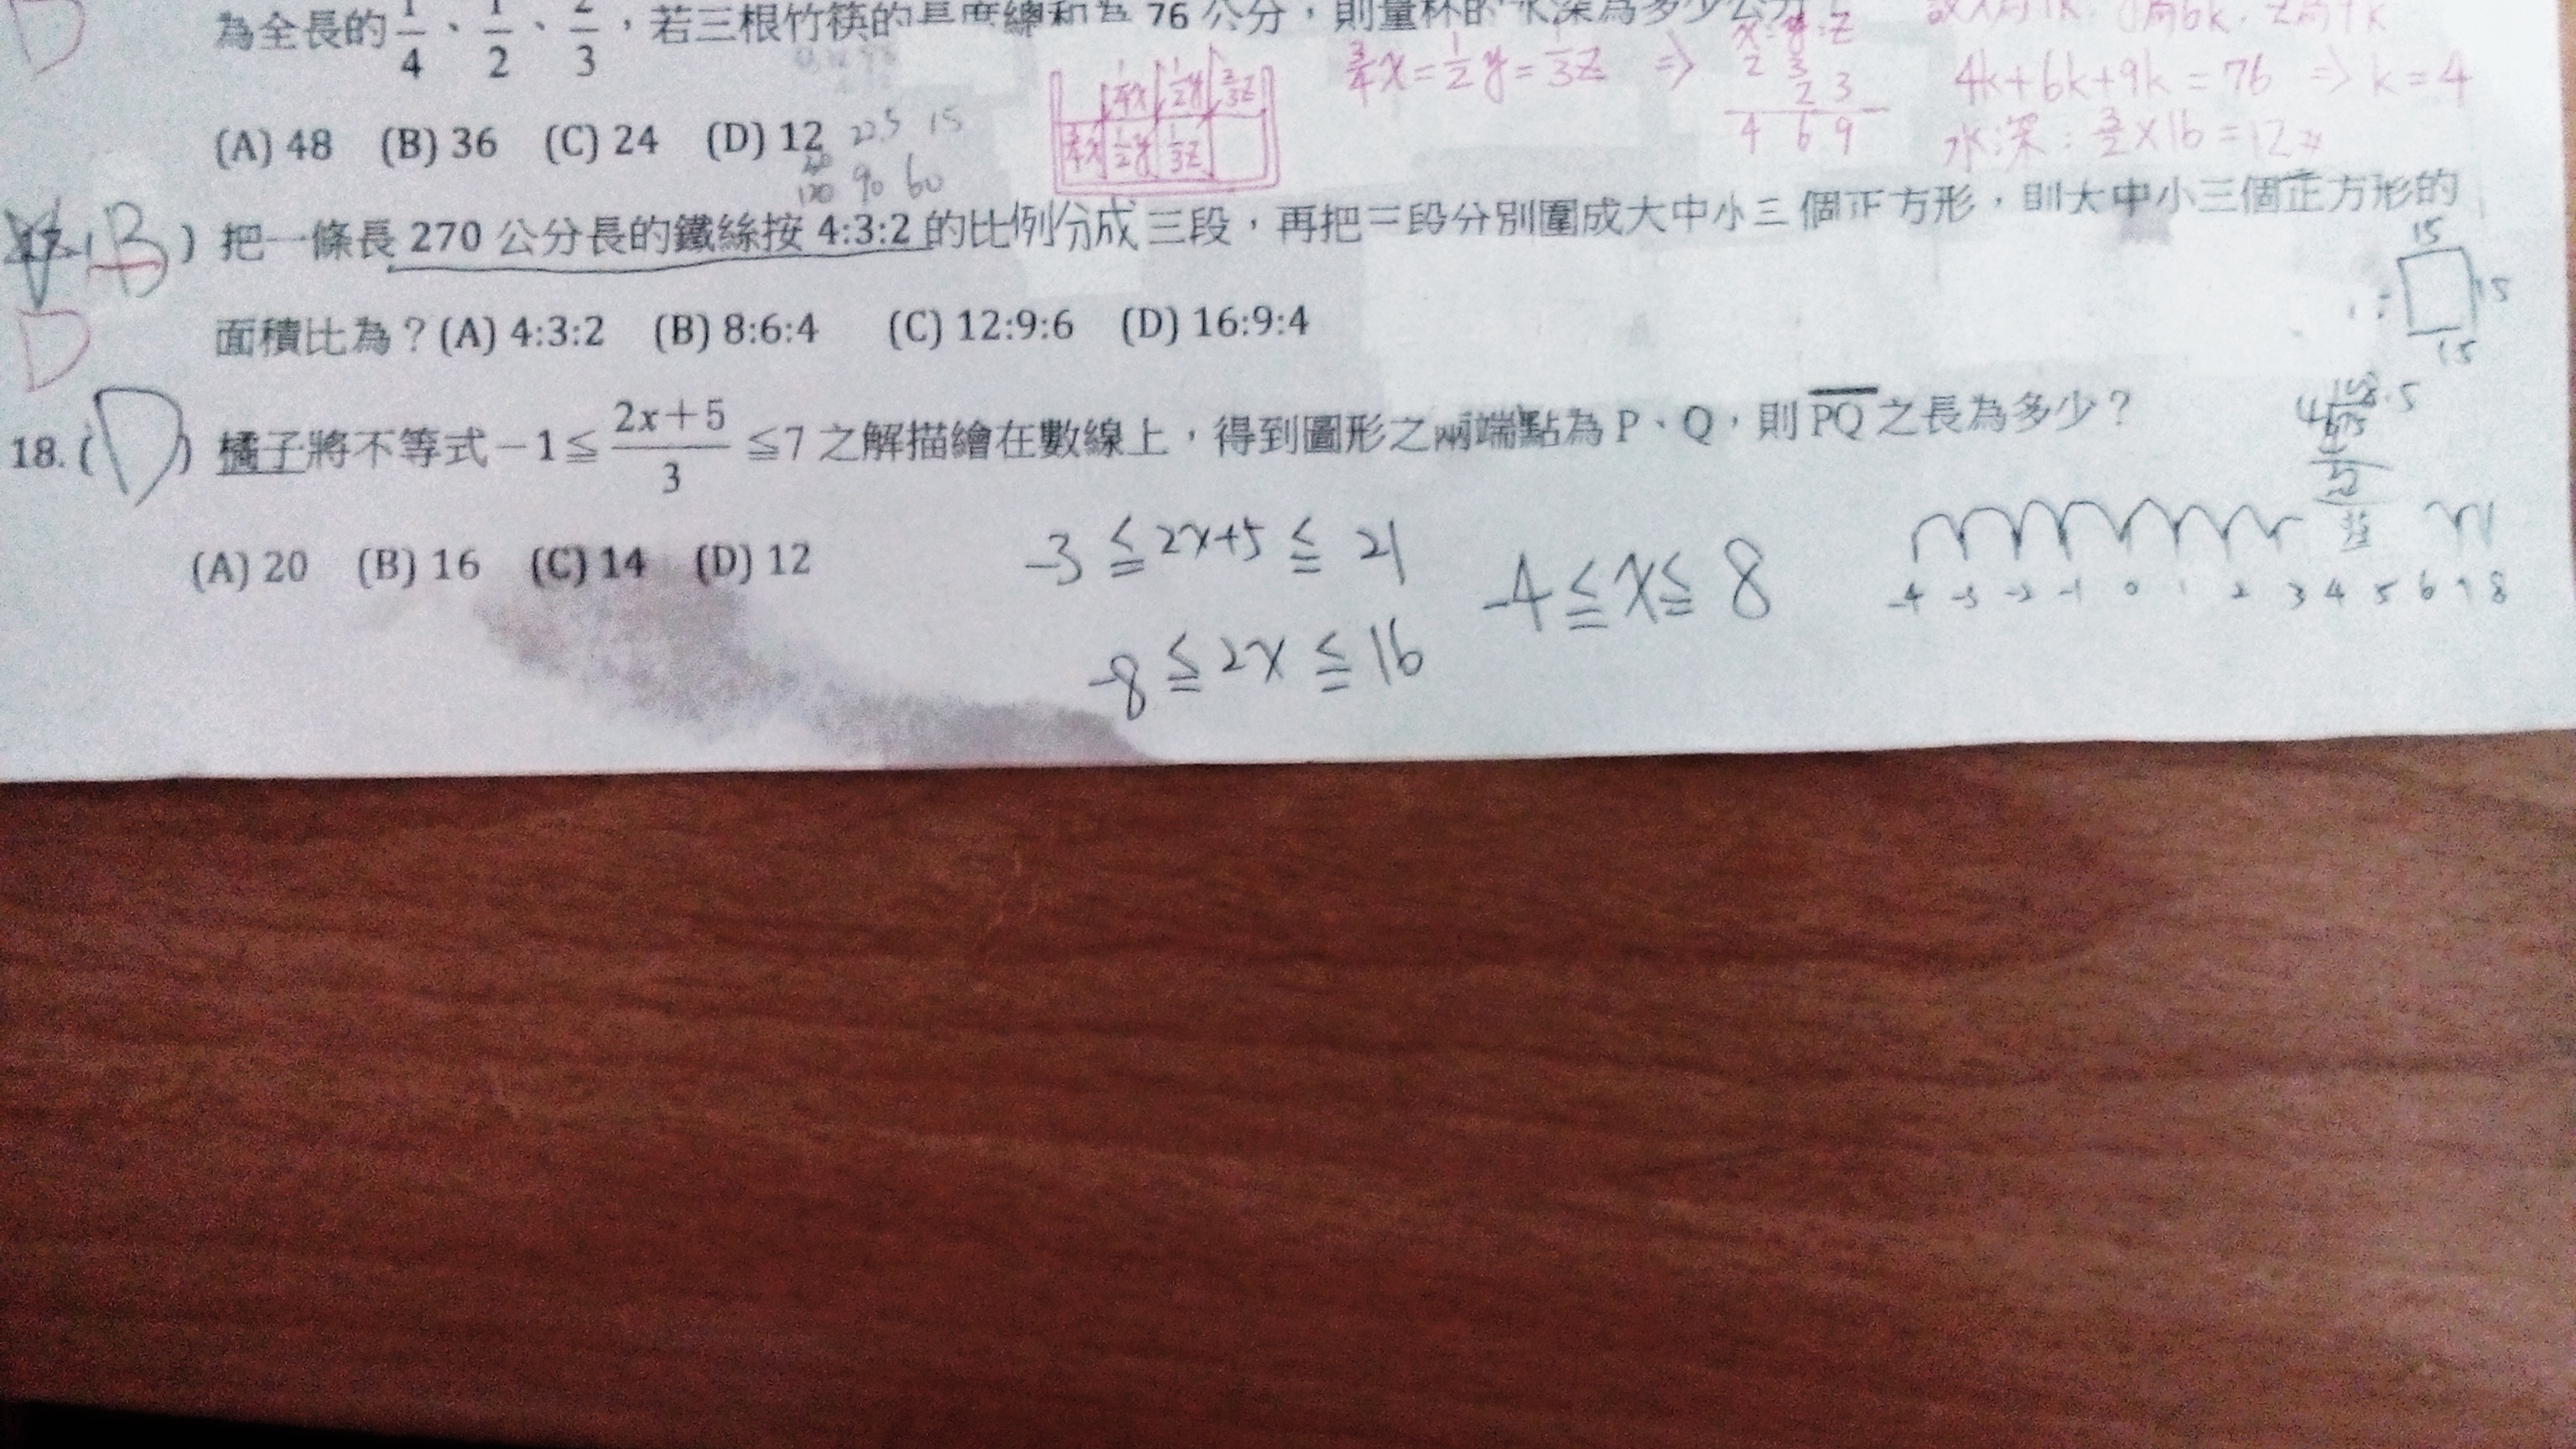 為全長的 1/4、1/2、2/3，若三根竹筷的長度總和為 76 公分，則量杯的水深為多少公分？
x:y:z
3/4x=1/2y=1/3z ⇒
2 3
2 3
4 6 9
4k+6k+9k=76 ⇒ k=4
1/4x 1/2y 2/3z
3/4x 1/2y 1/3z
(A) 48 (B) 36 (C) 24 (D) 12
22.5 15
120 90 60
B ) 把一條長 270 公分長的鐵絲按 4:3:2 的比例分成三段，再把三段分別圍成大中小三個正方形，則大中小三個正方形的
D
面積比為？(A) 4:3:2 (B) 8:6:4 (C) 12:9:6 (D) 16:9:4
15
15
15
18. ( D ) 橘子將不等式 −1≦(2x+5)/3≦7 之解描繪在數線上，得到圖形之兩端點為 P、Q，則 PQ 之長為多少？
(A) 20 (B) 16 (C) 14 (D) 12
-3 ≦ 2x+5 ≦ 21
-8 ≦ 2x ≦ 16
-4 ≦ x ≦ 8
-4 -3 -2 -1 0 1 2 3 4 5 6 7 8